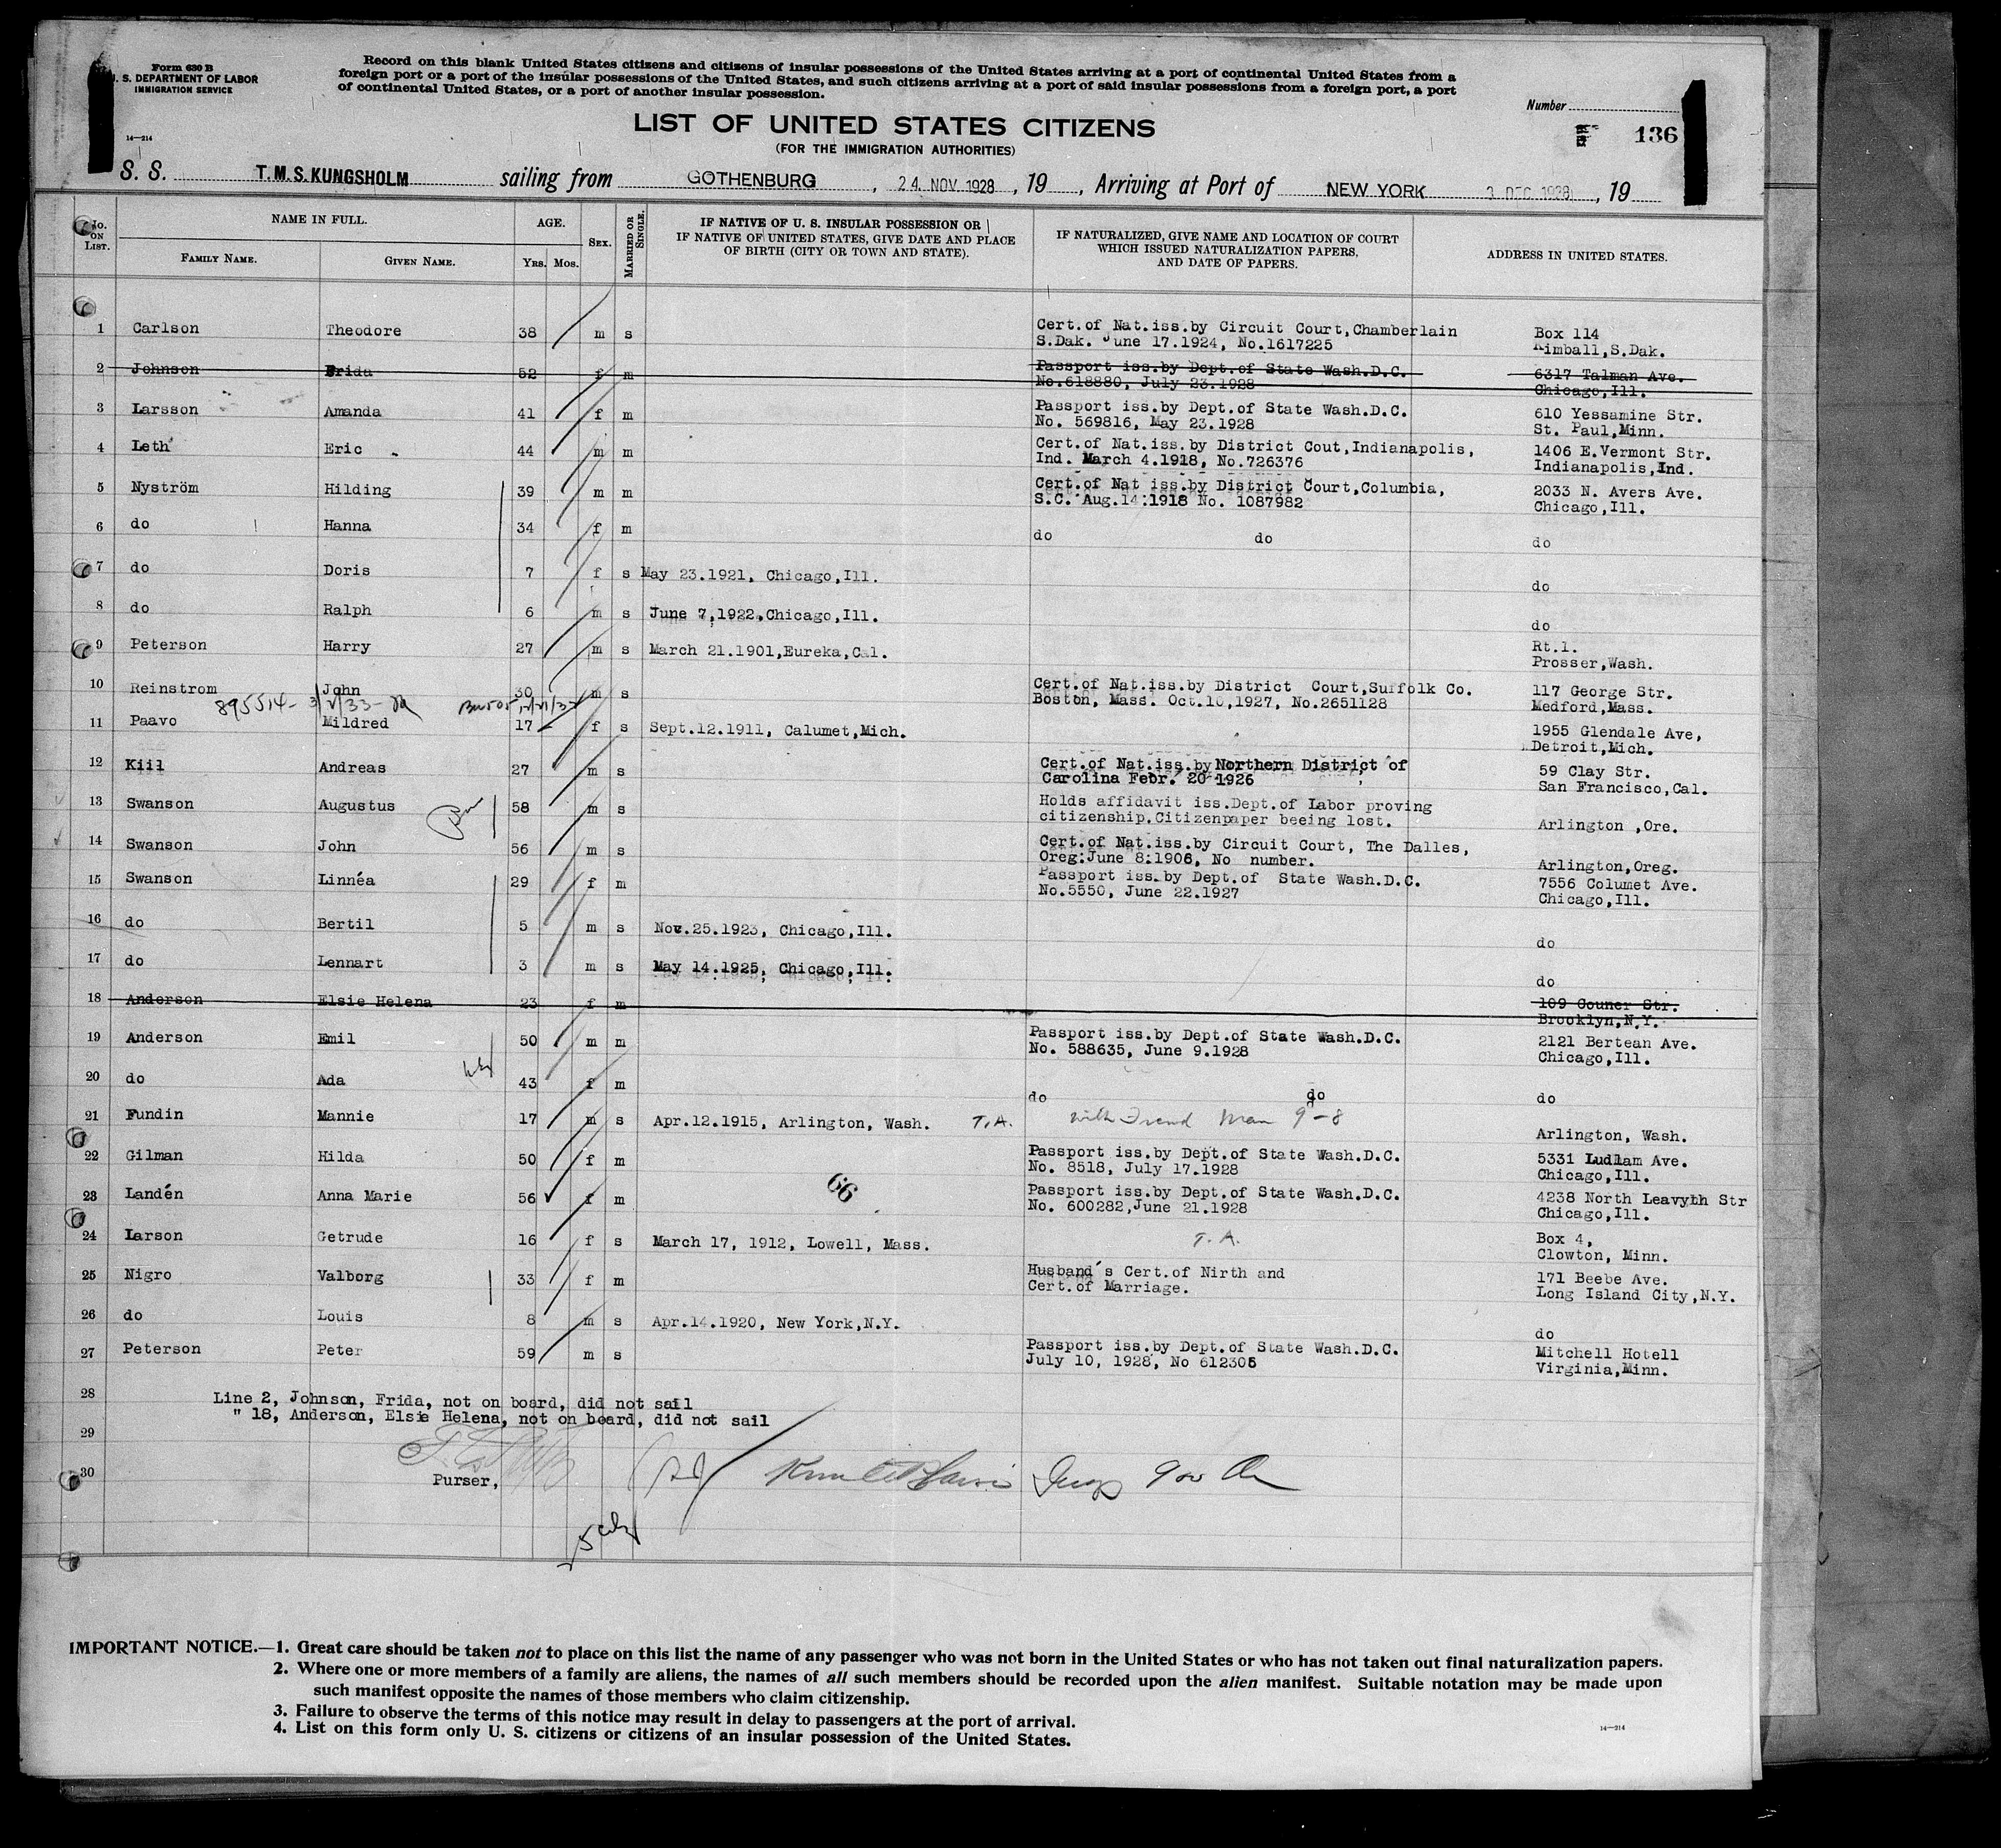 Form 630 B
U. S. DEPARTMENT OF LABOR
IMMIGRATION SERVICE
14—214
Record on this blank United States citizens and citizens of insular possessions of the United States arriving at a port of continental United States from a
foreign port or a port of the insular possessions of the United States, and such citizens arriving at a port of said insular possessions from a foreign port, a port
of continental United States, or a port of another insular possession.
LIST OF UNITED STATES CITIZENS
(FOR THE IMMIGRATION AUTHORITIES)
Number
136
S. S. T.M.S.KUNGSHOLM sailing from GOTHENBURG, 24. NOV. 1928, 19 , Arriving at Port of NEW YORK 3 DEC 1928, 19
No. ON LIST.
NAME IN FULL.
FAMILY NAME. GIVEN NAME.
AGE.
YRS. MOS.
SEX.
MARRIED OR SINGLE.
IF NATIVE OF U. S. INSULAR POSSESSION OR
IF NATIVE OF UNITED STATES, GIVE DATE AND PLACE
OF BIRTH (CITY OR TOWN AND STATE).
IF NATURALIZED, GIVE NAME AND LOCATION OF COURT
WHICH ISSUED NATURALIZATION PAPERS,
AND DATE OF PAPERS.
ADDRESS IN UNITED STATES.
1 Carlson Theodore 38 m s Cert.of Nat.iss.by Circuit Court,Chamberlain Box 114
S.Dak. June 17.1924, No.1617225 Kimball,S.Dak.
2 Johnson Frida 52 f m Passport iss.by Dept.of State Wash.D.C. 6317 Talman Ave.
No.618880, July 23.1928 Chicago,Ill.
3 Larsson Amanda 41 f m Passport iss.by Dept.of State Wash.D.C. 610 Yessamine Str.
No. 569816, May 23.1928 St. Paul,Minn.
4 Leth Eric 44 m m Cert.of Nat.iss.by District Cout,Indianapolis, 1406 E.Vermont Str.
Ind. March 4.1918, No.726376 Indianapolis,Ind.
5 Nyström Hilding 39 m m Cert.of Nat iss.by District Court,Columbia, 2033 N. Avers Ave.
S.C. Aug.14.1918 No. 1087982 Chicago,Ill.
6 do Hanna 34 f m do do do
7 do Doris 7 f s May 23.1921, Chicago,Ill. do
8 do Ralph 6 m s June 7,1922,Chicago,Ill. do
9 Peterson Harry 27 m s March 21.1901,Eureka,Cal. Rt.1.
Prosser,Wash.
10 Reinstrom John 30 m s Cert.of Nat.iss.by District Court,Suffolk Co. 117 George Str.
895514- Boston, Mass. Oct.10,1927, No.2651128 Medford,Mass.
11 Paavo Mildred 17 f s Sept.12.1911, Calumet,Mich. 1955 Glendale Ave,
Detroit,Mich.
12 Kiil Andreas 27 m s Cert.of Nat.iss.by Northern District of 59 Clay Str.
Carolina Febr. 20 1926 San Francisco,Cal.
13 Swanson Augustus 58 m s Holds affidavit iss.Dept.of Labor proving
citizenship.Citizenpaper beeing lost. Arlington ,Ore.
14 Swanson John 56 m s Cert.of Nat.iss.by Circuit Court, The Dalles,
Oreg:June 8:1906, No number. Arlington,Oreg.
15 Swanson Linnéa 29 f m Passport iss.by Dept.of State Wash.D.C. 7556 Columet Ave.
No.5550, June 22.1927 Chicago,Ill.
16 do Bertil 5 m s Nov.25.1923, Chicago,Ill. do
17 do Lennart 3 m s May 14.1925, Chicago,Ill. do
18 Anderson Elsie Helena 23 f m 109 Couner Str.
Brooklyn,N.Y.
19 Anderson Emil 50 m m Passport iss.by Dept.of State Wash.D.C. 2121 Bertean Ave.
No. 588635, June 9.1928 Chicago,Ill.
20 do Ada 43 f m do do do
21 Fundin Mannie 17 m s Apr.12.1915, Arlington, Wash. T.A. with Friend Man 9-8
Arlington, Wash.
22 Gilman Hilda 50 f m Passport iss.by Dept.of State Wash.D.C. 5331 Ludlam Ave.
No. 8518, July 17.1928 Chicago,Ill.
23 Landén Anna Marie 56 f m 66 Passport iss.by Dept.of State Wash.D.C. 4238 North Leavyhh Str
No. 600282,June 21.1928 Chicago,Ill.
24 Larson Getrude 16 f s March 17, 1912, Lowell, Mass. T.A. Box 4,
Clowton, Minn.
25 Nigro Valborg 33 f m Husband's Cert.of Nirth and 171 Beebe Ave.
Cert.of Marriage. Long Island City,N.Y.
26 do Louis 8 m s Apr.14.1920, New York,N.Y. do
27 Peterson Peter 59 m s Passport iss.by Dept.of State Wash.D.C. Mitchell Hotell
July 10, 1928, No 612305 Virginia,Minn.
28 Line 2, Johnson, Frida, not on board, did not sail
" 18, Anderson, Elsie Helena, not on board, did not sail
29
30 Purser,
IMPORTANT NOTICE.—1. Great care should be taken not to place on this list the name of any passenger who was not born in the United States or who has not taken out final naturalization papers.
2. Where one or more members of a family are aliens, the names of all such members should be recorded upon the alien manifest. Suitable notation may be made upon
such manifest opposite the names of those members who claim citizenship.
3. Failure to observe the terms of this notice may result in delay to passengers at the port of arrival.
4. List on this form only U. S. citizens or citizens of an insular possession of the United States.
14—214